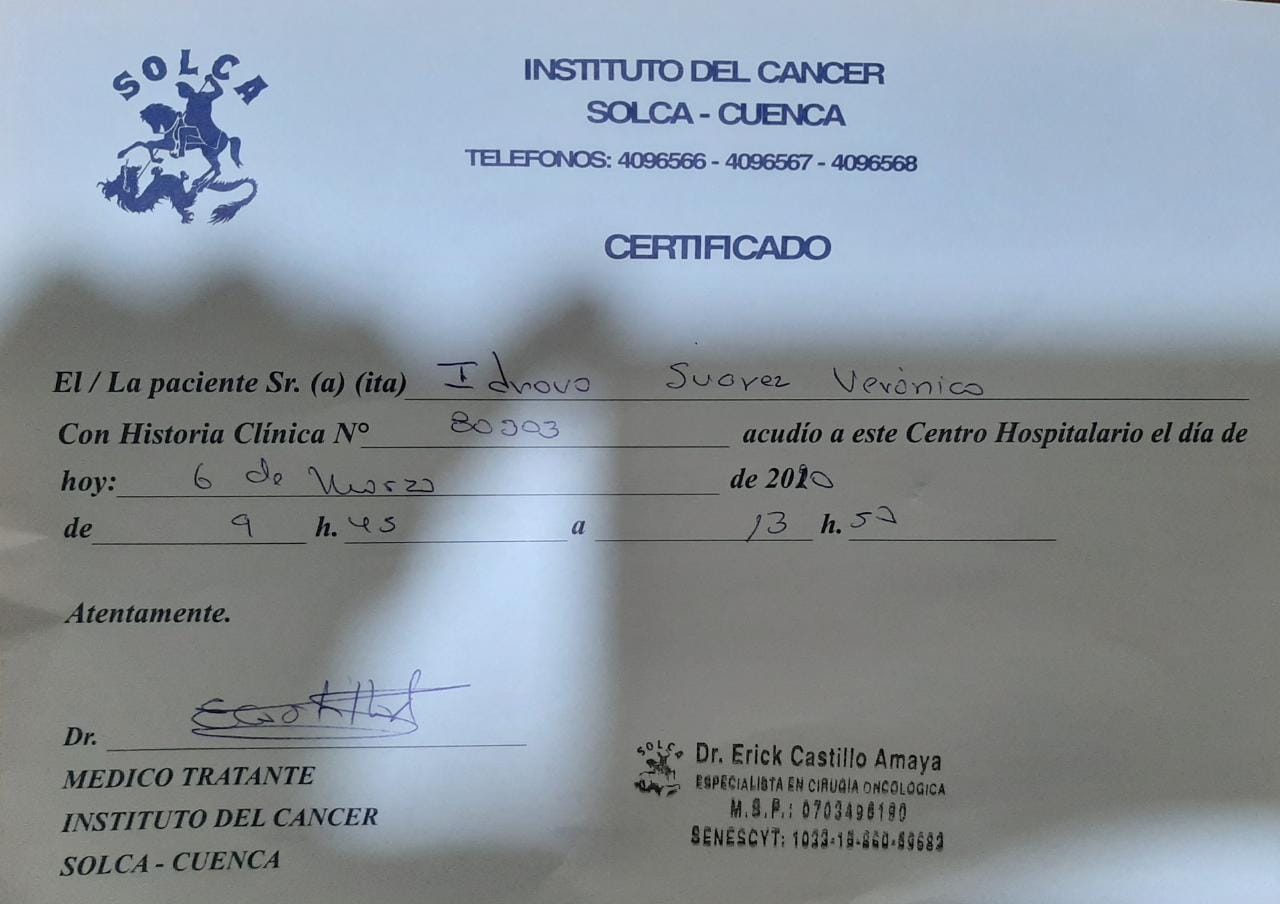 SOLCA
INSTITUTO DEL CANCER
SOLCA - CUENCA
TELEFONOS: 4096566 - 4096567 - 4096568
CERTIFICADO
El / La paciente Sr. (a) (ita) Idrovo Suarez Verónica
Con Historia Clínica N° 80303 acudío a este Centro Hospitalario el día de
hoy: 6 de Marzo de 2020
de 9 h. 45 a 13 h.
Atentamente.
Dr.
MEDICO TRATANTE
INSTITUTO DEL CANCER
SOLCA - CUENCA
SOLCA
Dr. Erick Castillo Amaya
ESPECIALISTA EN CIRUGIA ONCOLOGICA
M.S.P.: 0703496190
SENESCYT: